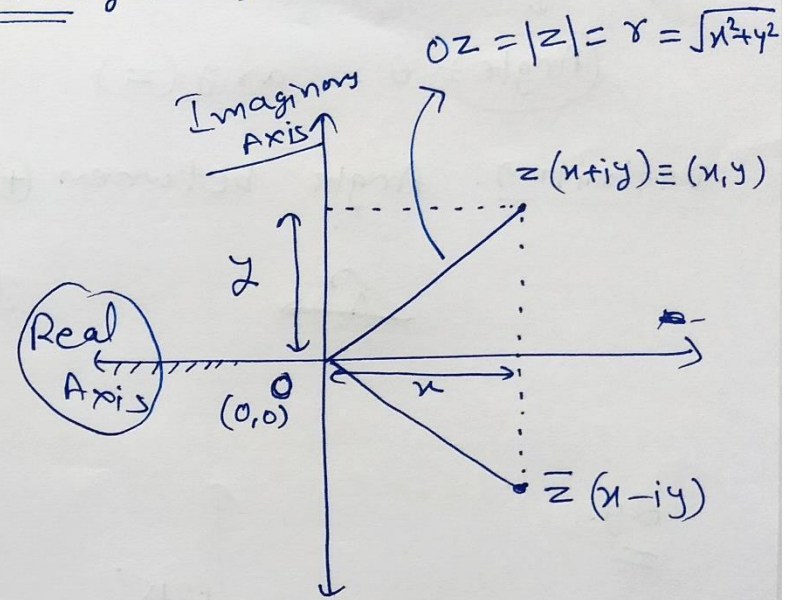 OZ = |Z| = r = √x²+y²
Imaginary
Axis
z (x+iy) ≡ (x,y)
y
Real
Axis
O
(0,0)
x
z̅ (x-iy)